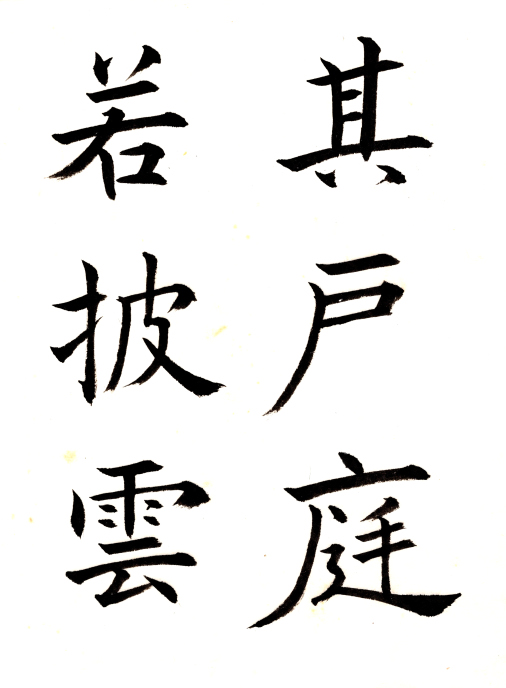 其戸庭
若披雲